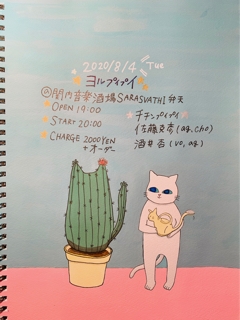 2020/8/4 Tue
ヨルプイプイ
@関内音楽酒場SARASVATHI 弁天
OPEN 19:00
START 20:00
CHARGE 2000YEN
+オーダー
チャンプイプイ
佐藤克彦(ag,cho)
酒井杏(vo,ag)